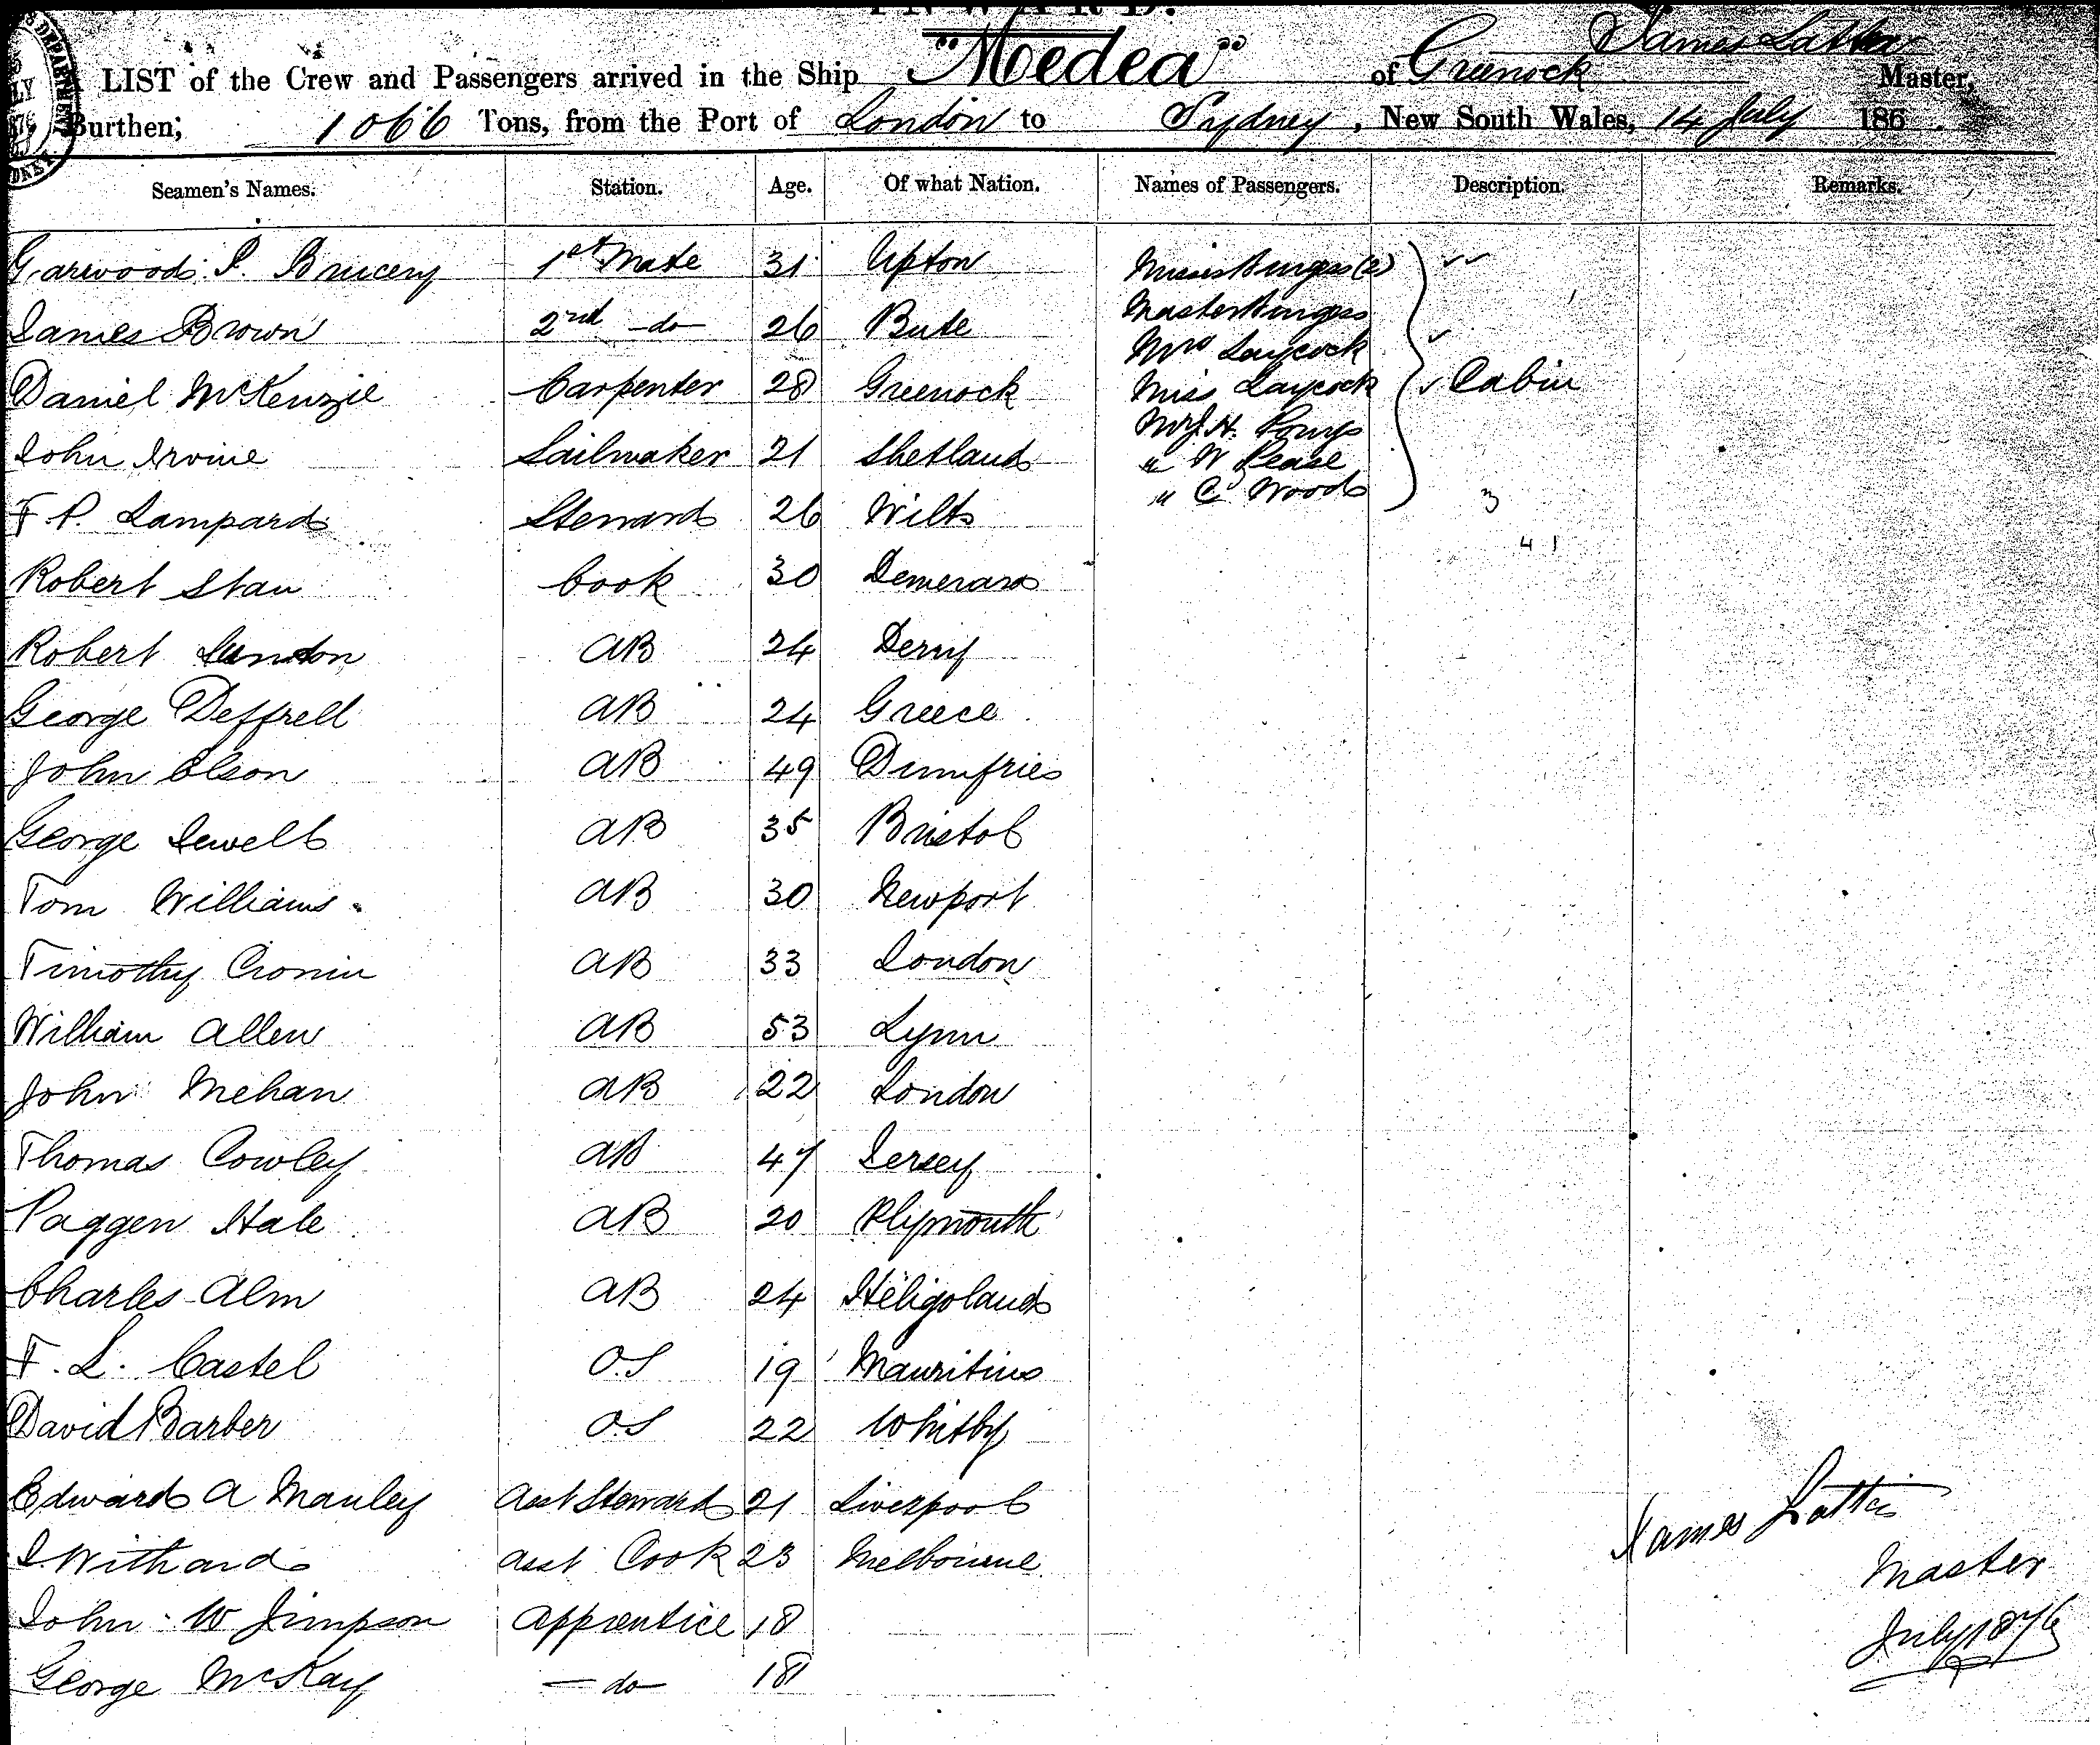 INWARD.
James Latta
LIST of the Crew and Passengers arrived in the Ship "Medea" of Greenock Master,
Burthen, 1066 Tons, from the Port of London to Sydney, New South Wales, 14 July 186
Seamen's Names. Station. Age. Of what Nation. Names of Passengers. Description. Remarks.
Garwood P. 1st Mate 31 Upton Misses Burgess (2)
Master Burgess
James Brown 2nd do 26 Bute
Mrs Laycock
Daniel McKenzie Carpenter 28 Greenock Miss Laycock Cabin
Mr J. H.
John Irvine Sailmaker 21 Shetland " W Pease
" C Woods 3
F. P. Lampard Steward 26 Wilts
41
Robert Stau Cook 30 Demerara
Robert AB 24 Derry
George Deffrell AB 24 Greece
John Olson AB 49 Dumfries
George Sewell AB 35 Bristol
Tom Williams AB 30 Newport
Timothy Cronin AB 33 London
William Allen AB 53 Lynn
John Mehan AB 22 London
Thomas Cowley AB 47 Jersey
Paggen Hale AB 20 Plymouth
Charles Alm AB 24 Heligoland
F. L. Castel O.S 19 Mauritius
David Barber O.S 22 Whitby
Edward A Manley Asst Steward 21 Liverpool
James Latta
J Withard Asst Cook 23 Melbourne
Master
John W Simpson Apprentice 18
July 1876
George McKay do 18